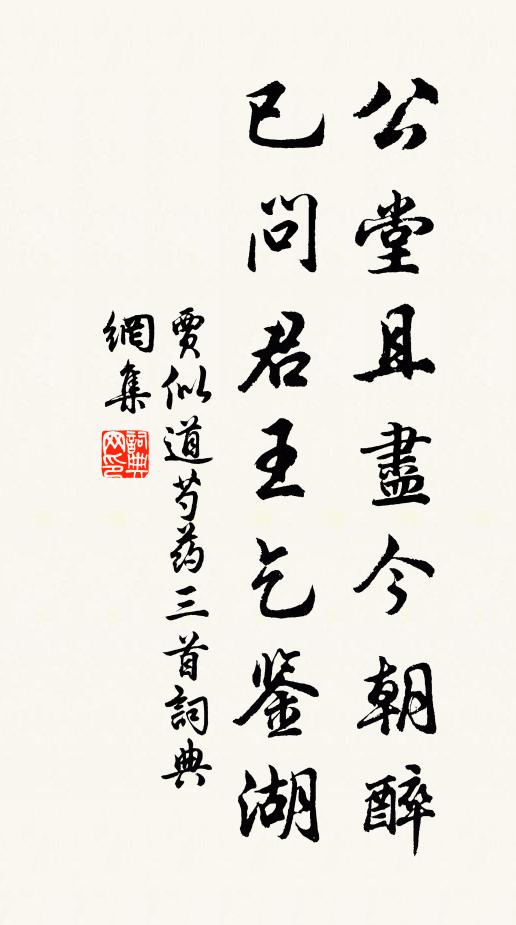 公堂且盡今朝醉
已問君王乞鉴湖
賈似道芍药三首詞典
網集
詞典网印